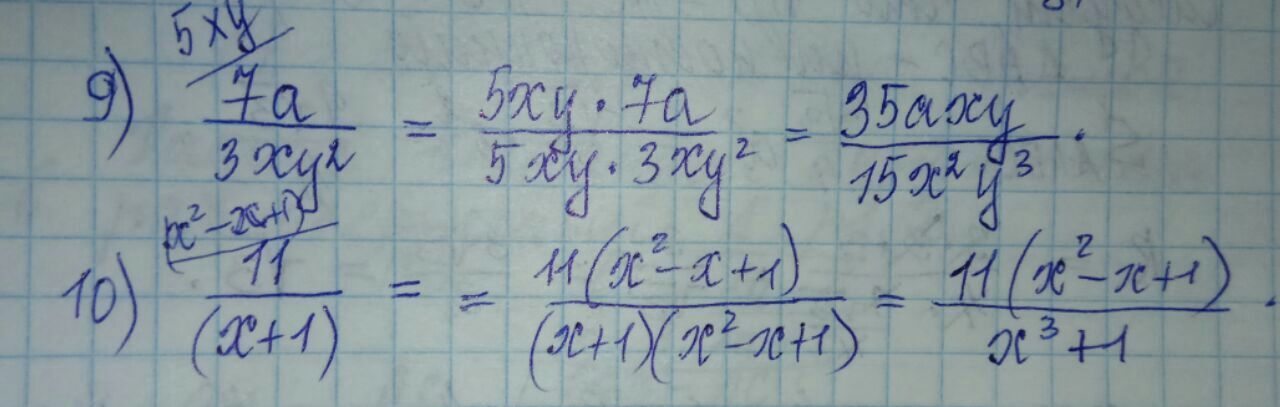 5xy
9) 7a/3xy² = 5xy · 7a/5xy · 3xy² = 35axy/15x²y³.
(x²-x+1)
10) 11/(x+1) = = 11(x²-x+1)/(x+1)(x²-x+1) = 11(x²-x+1)/x³+1.